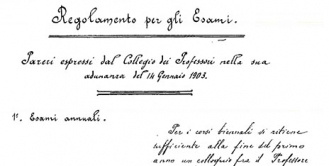 Regolamento per gli Esami.
Pareri espressi dal Collegio dei Professori nella sua
adunanza del 14 Gennaio 1903.
1º. Esami annuali.
Per i corsi biennali si ritiene
sufficiente alla fine del primo
anno un colloquio fra il Professore